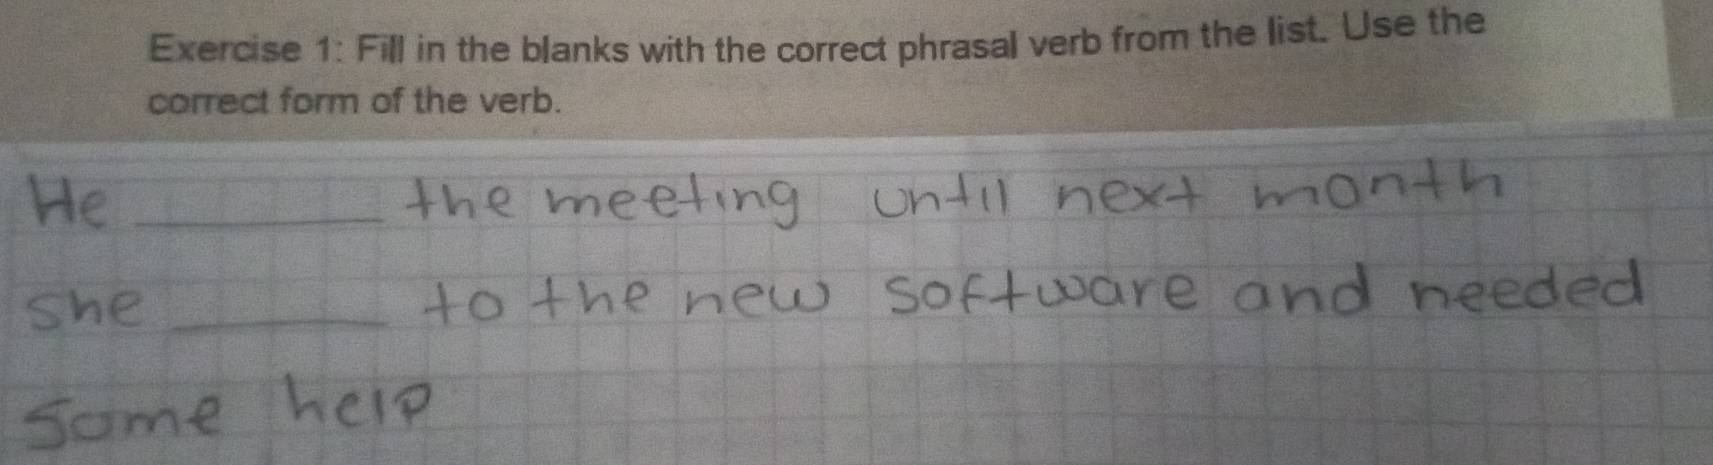 Exercise 1: Fill in the blanks with the correct phrasal verb from the list. Use the
correct form of the verb.
He ________ the meeting until next month
she ________ to the new software and needed
some help